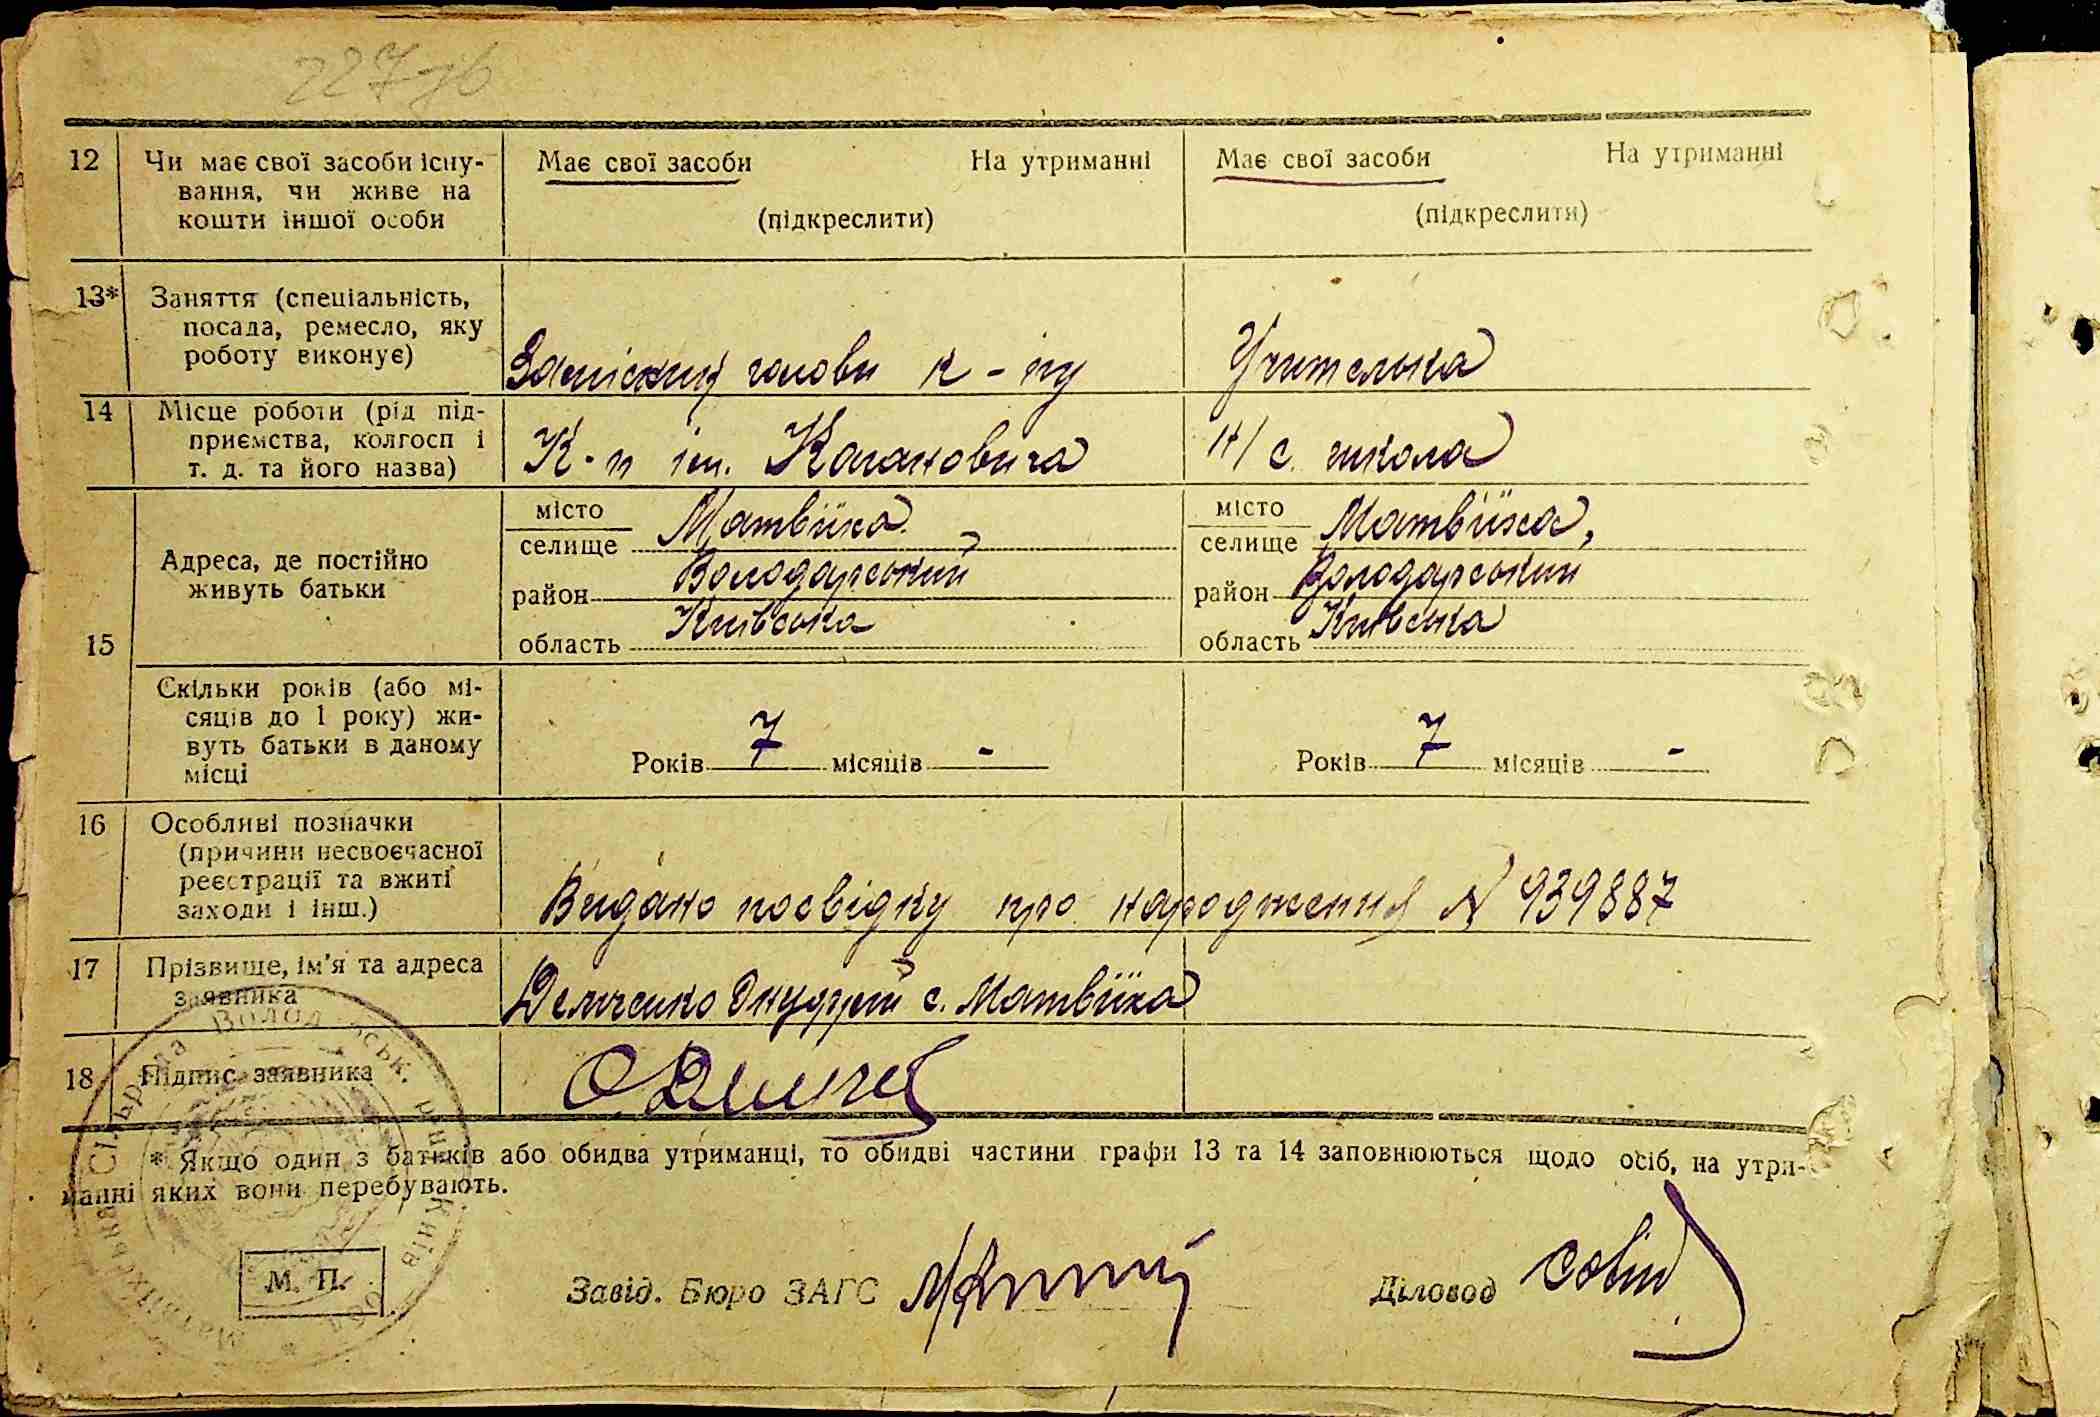 227 зв
12 Чи має свої засоби існу- Має свої засоби На утриманні Має свої засоби На утриманні
вання, чи живе на
кошти іншої особи (підкреслити) (підкреслити)
13* Заняття (спеціальність,
посада, ремесло, яку
роботу виконує) Замісниц голови к-пу Учителька
14 Місце роботи (рід під-
приємства, колгосп і К-п ім. Кагановича н/с. школа
т. д. та його назва)
місто Матвіїха місто Матвіїха,
селище селище
Адреса, де постійно
живуть батьки район Володарський район Володарський
15 область Київська область Київська
Скільки років (або мі-
сяців до 1 року) жи-
вуть батьки в даному Років 7 місяців - Років 7 місяців -
місці
16 Особливі позначки
(причини несвоєчасної
реєстрації та вжиті
заходи і інш.) Видано посвідку про народження N 939887
17 Прізвище, ім'я та адреса
заявника Демченко Онуфрій с. Матвіїха
18 Підпис заявника О.Демче
* Якщо один з батьків або обидва утриманці, то обидві частини графи 13 та 14 заповнюються щодо осіб, на утри-
манні яких вони перебувають.
М. П. Завід. Бюро ЗАГС Діловод
Матвіїхська Сільрада Волод ськ. р-ну Київ обл